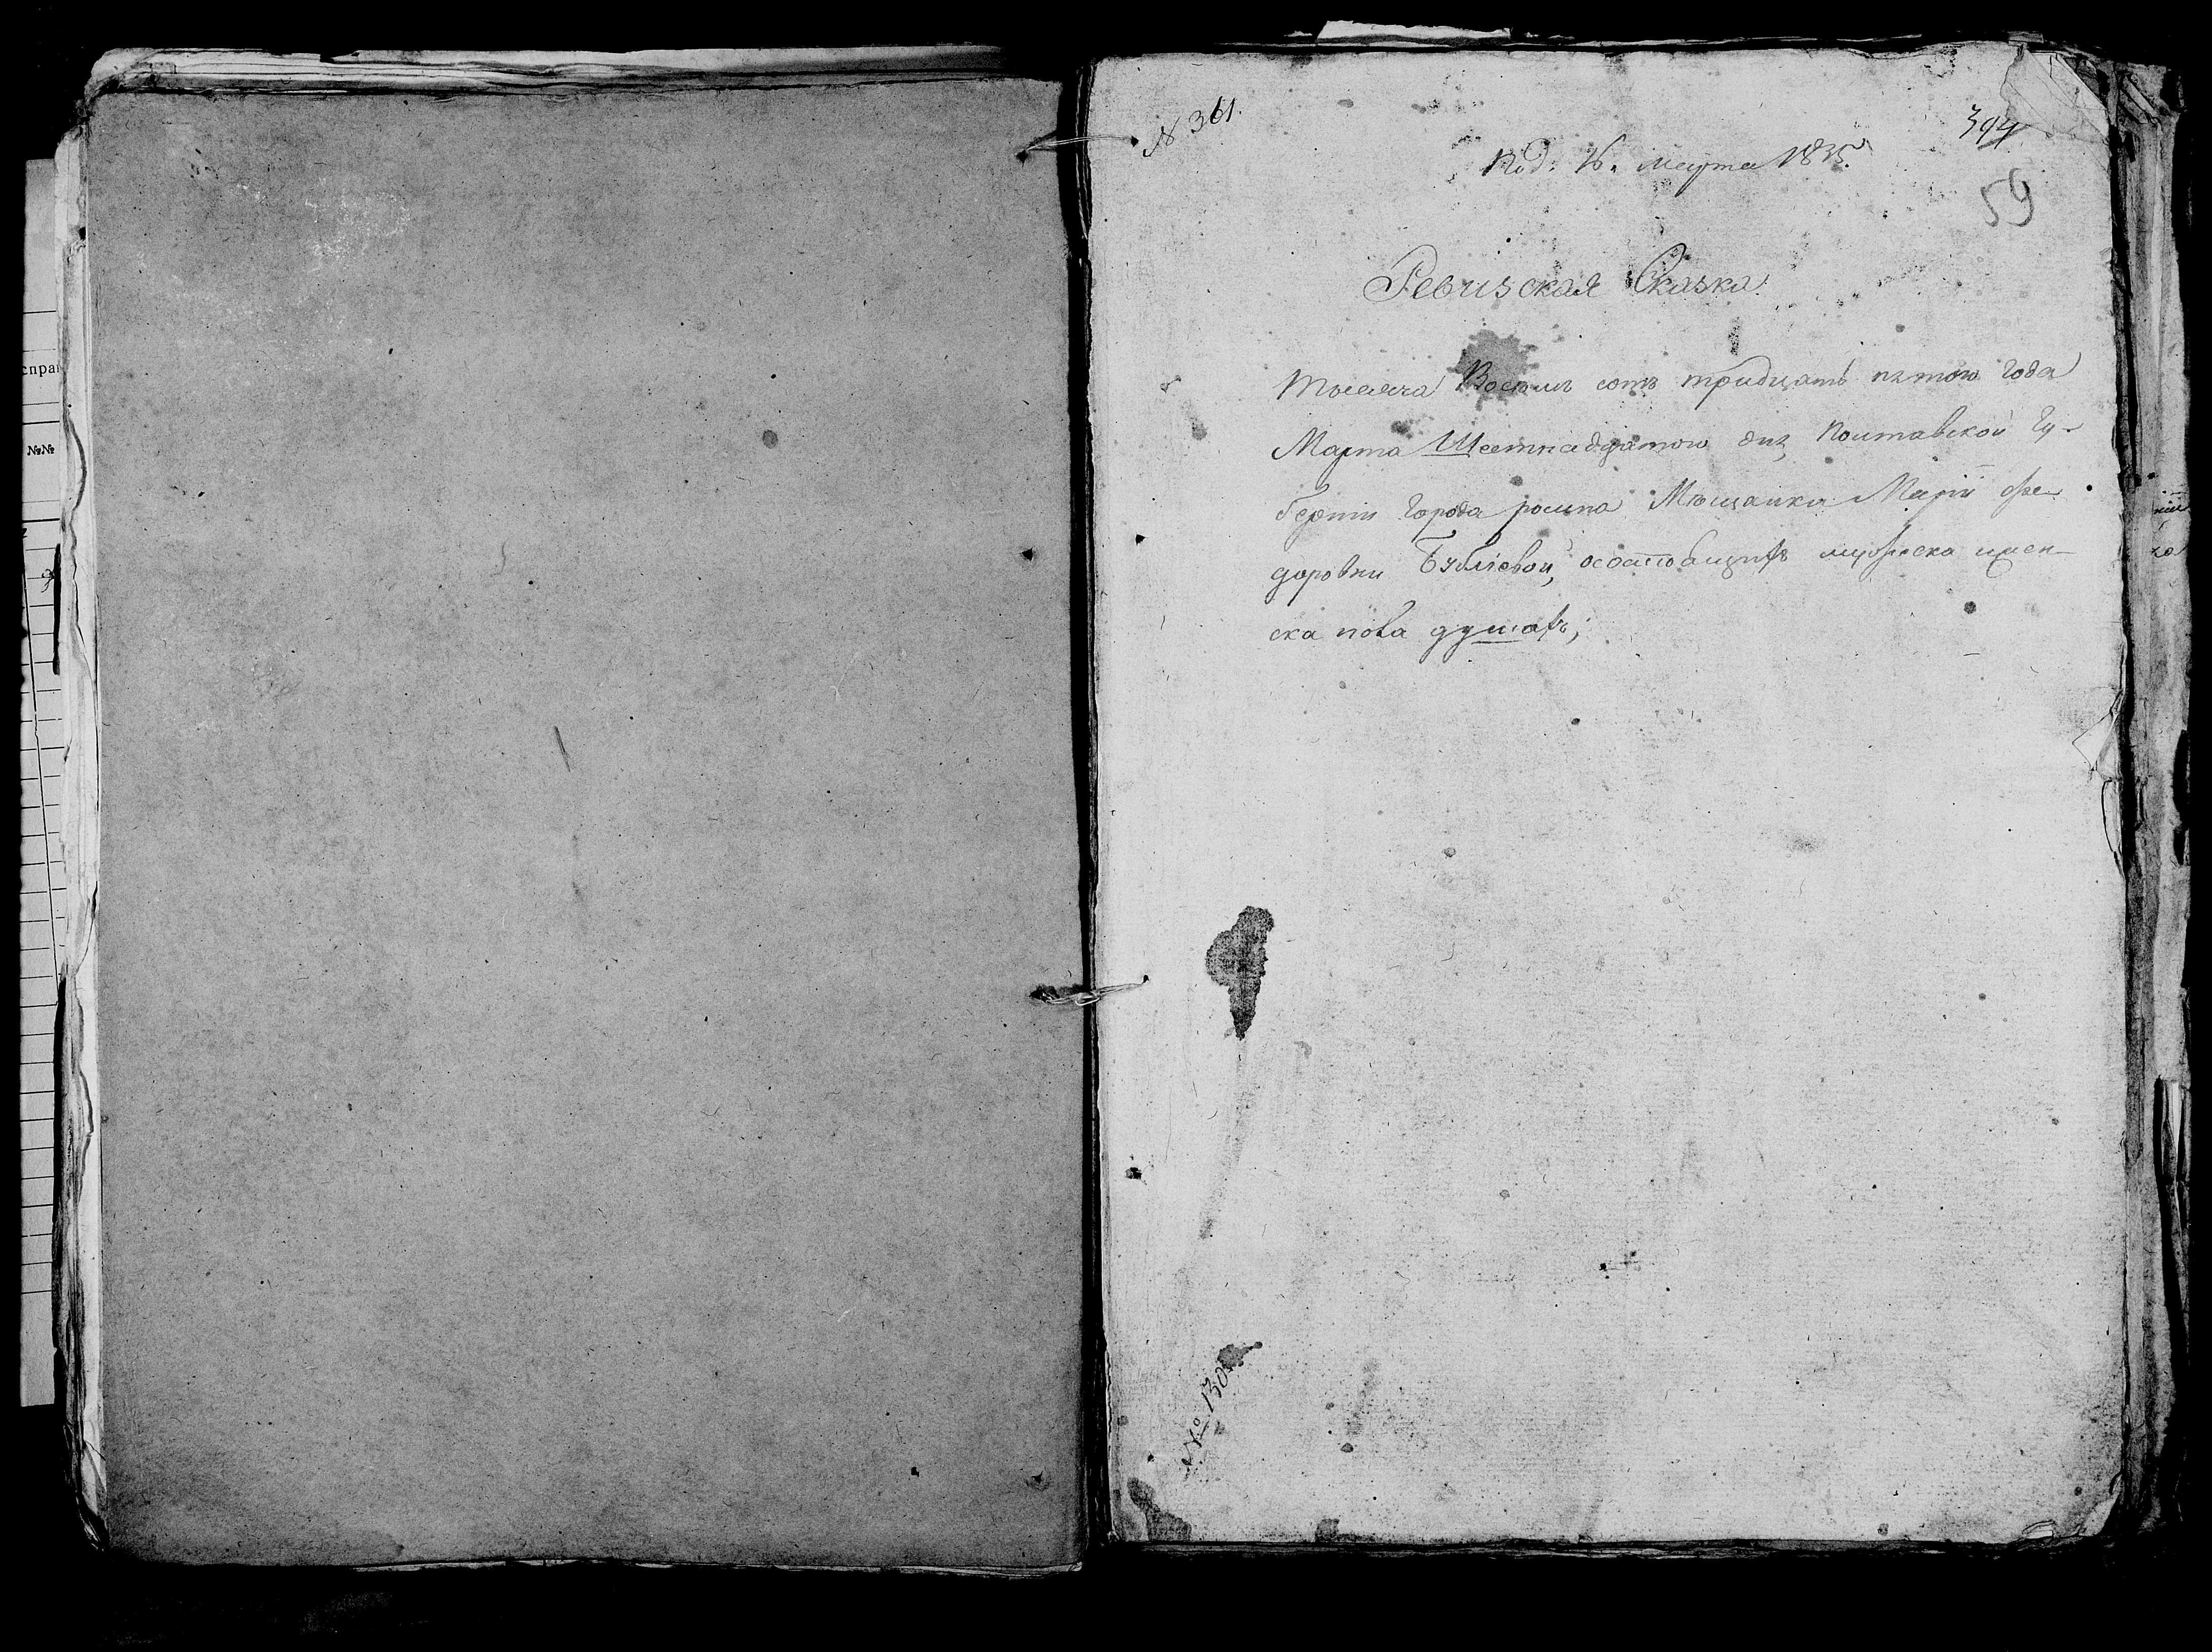 № 361.
394
Под. 16. марта 1835.
59
Ревизская Сказка.
Тысяча Восемь сотъ тридцать пятого года
Марта Шестнадцятого дня, Полтавской Гу-
берніи Города ромна Мѣщанки Маріи Фе-
доровни Бубліевой, осостоящихъ мужеска иженска
ска пола душахъ;
№ 130
спра
№№